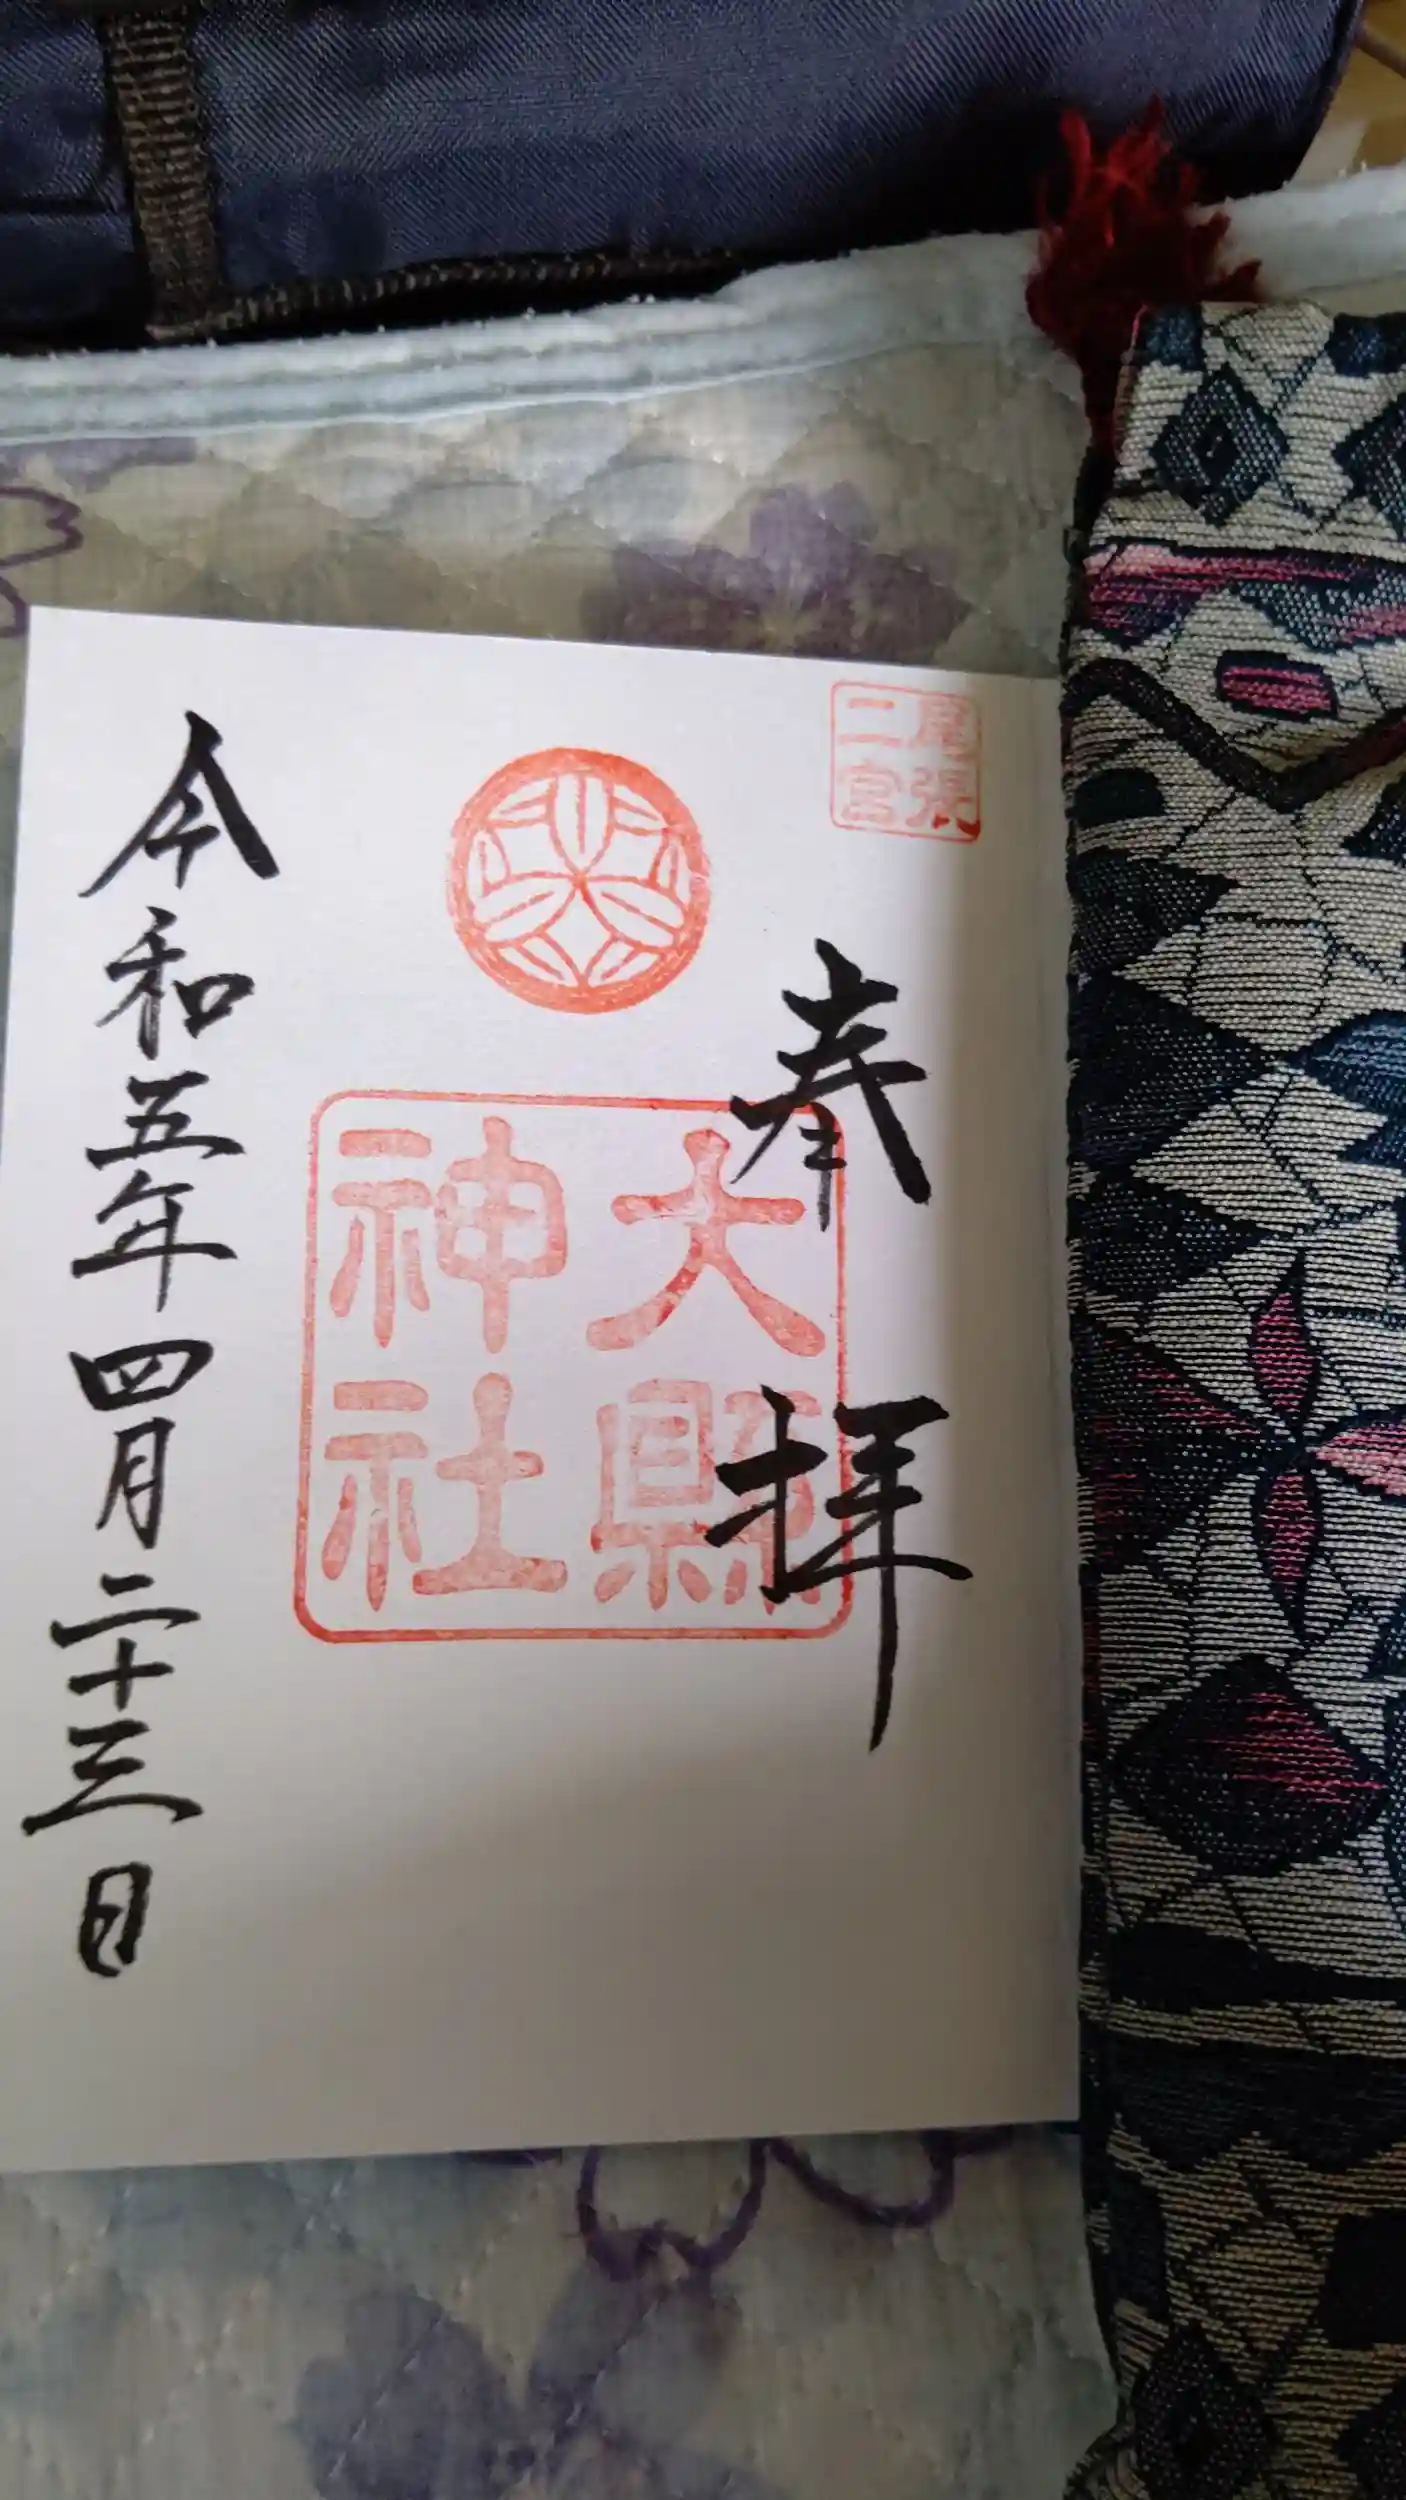 尾張
二宮
奉拝
大縣
神社
令和五年四月二十三日